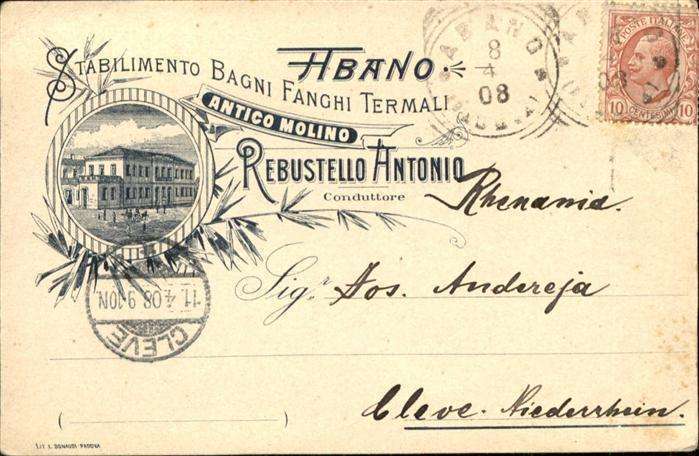 ABANO
STABILIMENTO BAGNI FANGHI TERMALI
ANTICO MOLINO
REBUSTELLO ANTONIO
Conduttore
ABANO
8
4
08
POSTE ITALIANE
10 CENTESIMI 10
08
Rhenania.
Sigr. Jos. Andereja
CLEVE
11.4.08.9-10N.
Cleve. Niederrhein.
LIT. L. BONALDI PADOVA